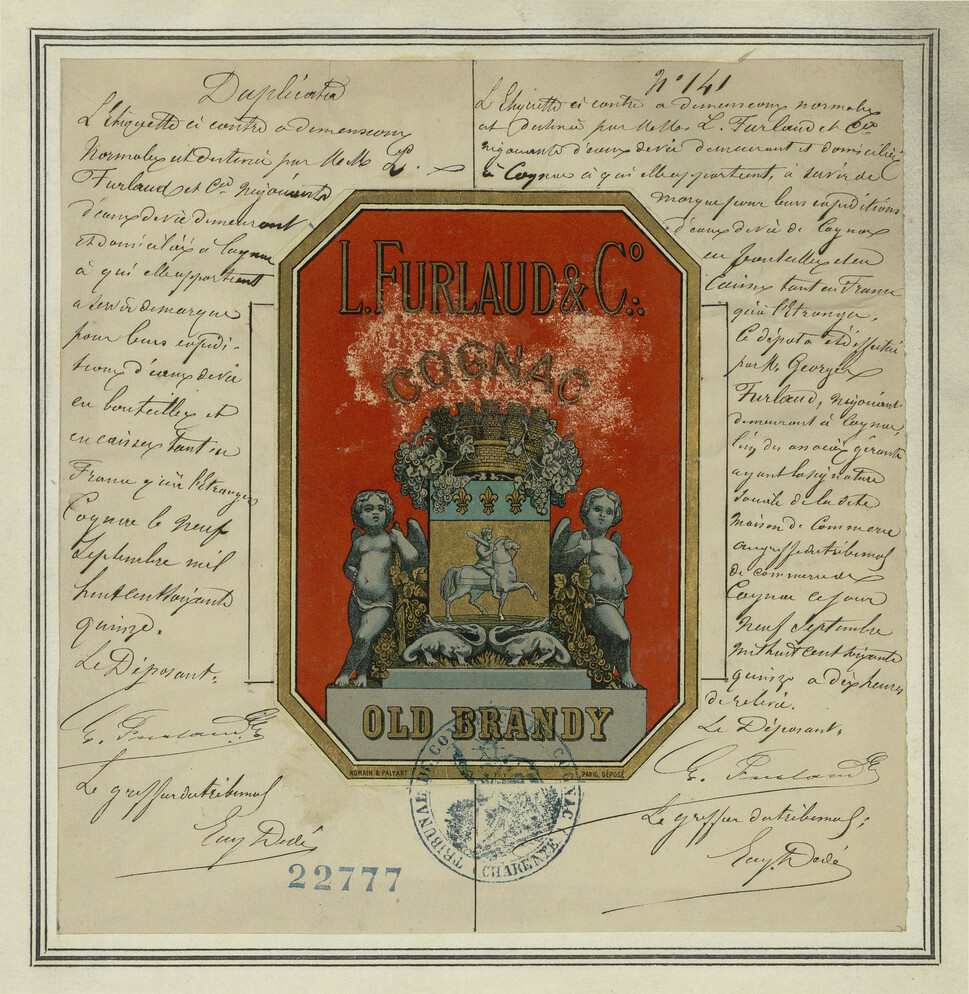 Duplicata
L'étiquette ci contre a dimensions
Normales et destinée par MM L.
Furlaud et Cie négociants
d'eaux de vie demeurant
et domiciliés à Cognac
à qui elle appartient
a servir de marque
pour leurs expédi-
tions d'eaux de vie
en bouteilles et
en caisses tant en
France qu'à l'Etranger
Cognac le neuf
Septembre mil
huit cent soixante
quinze.
Le Déposant:
G. Furlaud
Le greffier du tribunal
Eug Dedé
22777
No 141
L'Etiquette ci contre a dimensions normales
est destinée par MM. L. Furlaud et Cie
négociants d'eaux de vie demeurant et domiciliés
à Cognac à qui elle appartient, à servir de
marque pour leurs expéditions
d'eaux de vie de Cognac
en bouteilles et en
Caisses tant en France
qu'à l'Etranger.
Ce dépot a été effectué
par M. Georges
Furlaud, négociant
demeurant à Cognac,
l'un des associés gérants
ayant la signature
sociale de la dite
Maison de Commerce
au greffe du tribunal
de commerce de
Cognac ce jour
neuf Septembre
mil huit cent soixante
quinze a dix heures
de relevé.
Le Déposant,
G. Furlaud
Le greffier du tribunal;
Eug. Dedé
L. FURLAUD & Co.
COGNAC
OLD BRANDY
ROMAIN & PALYART
PARIS, DÉPOSÉ
TRIBUNAL DE COMMERCE COGNAC
CHARENTE